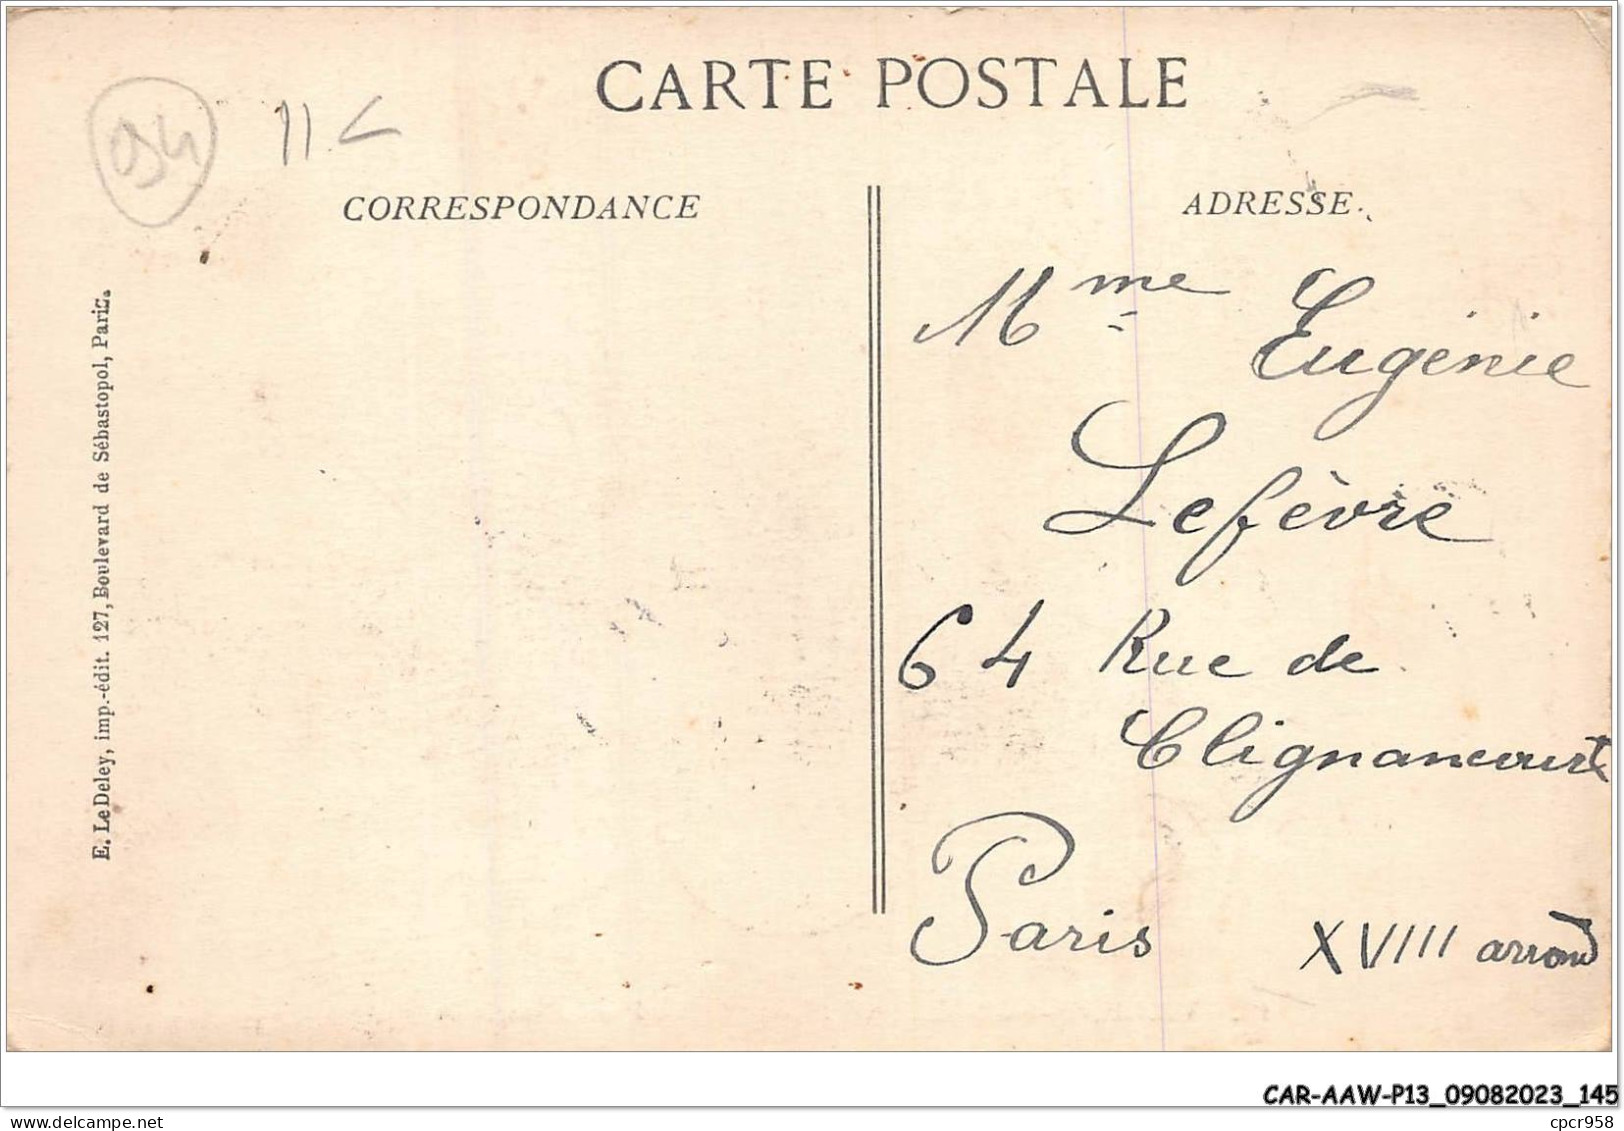 CARTE POSTALE
094
11 <
CORRESPONDANCE
ADRESSE.
Mme Eugénie
Lefèvre
64 Rue de
Clignancourt
Paris
XVIII arrond
E. Le Deley, imp.-édit. 127, Boulevard de Sébastopol, Paris.
CAR-AAW-P13_09082023_145
cpcr958